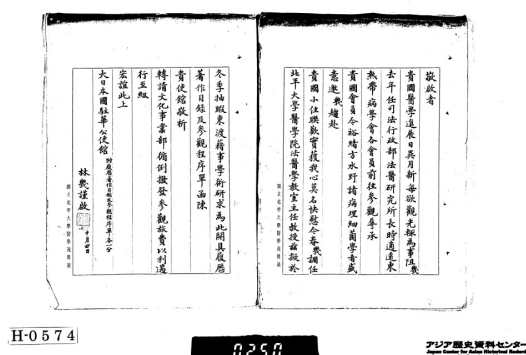 敬啟者
貴國醫學進展日異月新每欲觀光輒為事阻幾
去年任司法行政部法醫研究所長時適遠東
熱帶病學會各會員前往參觀辱承
貴國會員今裕緒方水野諸病理細菌學者盛
意邀幾趨赴
貴國小住聯歡實獲我心莫名快慰今春幾調任
北平大學醫學院法醫學教室主任教授茲擬於
國立北平大學醫學院用箋
冬季抽暇東渡藉事學術研求為此開具履歷
著作目錄及參觀程序單函陳
貴使館敬祈
轉請文化事業部備倒撥發參觀旅費以利遄
行至紉
宏誼此上
大日本國駐華公使館
附履歷著作目錄及參觀程序單各一份
林幾謹啟
十月四日
國立北平大學醫學院用箋
H-0574
0250
アジア歴史資料センター
Japan Center for Asian Historical Records